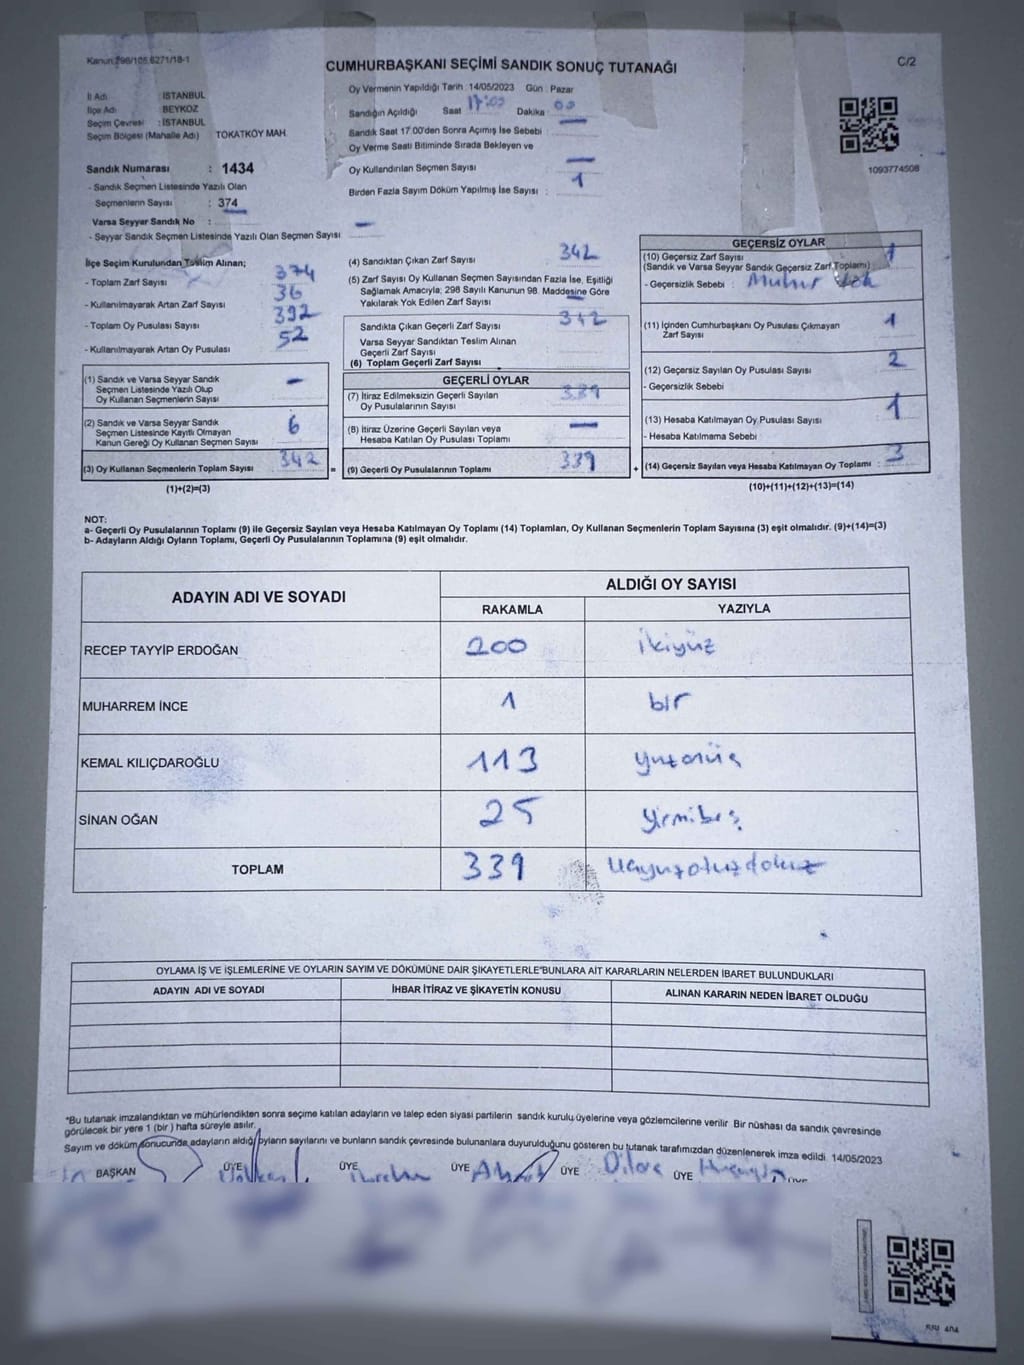 Kanun:298/105,6271/18-1
C/2
CUMHURBAŞKANI SEÇİMİ SANDIK SONUÇ TUTANAĞI
İl Adı : İSTANBUL
İlçe Adı : BEYKOZ
Seçim Çevresi : İSTANBUL
Seçim Bölgesi (Mahalle Adı) TOKATKÖY MAH.
Sandık Numarası : 1434
- Sandık Seçmen Listesinde Yazılı Olan
Seçmenlerin Sayısı : 374
Varsa Seyyar Sandık No :
- Seyyar Sandık Seçmen Listesinde Yazılı Olan Seçmen Sayısı : —
Oy Vermenin Yapıldığı Tarih :14/05/2023 Gün : Pazar
Sandığın Açıldığı Saat 17:00 Dakika : 00
Sandık Saat 17.00'den Sonra Açımış İse Sebebi : —
Oy Verme Saati Bitiminde Sırada Bekleyen ve
Oy Kullandırılan Seçmen Sayısı : —
Birden Fazla Sayım Döküm Yapılmış İse Sayısı : 1
1093774508
İlçe Seçim Kurulundan Teslim Alınan;
- Toplam Zarf Sayısı : 374
- Kullanılmayarak Artan Zarf Sayısı : 36
- Toplam Oy Pusulası Sayısı 392
- Kullanılmayarak Artan Oy Pusulası 52
(1) Sandık ve Varsa Seyyar Sandık
Seçmen Listesinde Yazılı Olup
Oy Kullanan Seçmenlerin Sayısı —
(2) Sandık ve Varsa Seyyar Sandık
Seçmen Listesinde Kayıtlı Olmayan
Kanun Gereği Oy Kullanan Seçmen Sayısı 6
(3) Oy Kullanan Seçmenlerin Toplam Sayısı : 342
(1)+(2)=(3)
(4) Sandıktan Çıkan Zarf Sayısı 342
(5) Zarf Sayısı Oy Kullanan Seçmen Sayısından Fazla İse, Eşitliği
Sağlamak Amacıyla; 298 Sayılı Kanunun 98. Maddesine Göre
Yakılarak Yok Edilen Zarf Sayısı —
Sandıkta Çıkan Geçerli Zarf Sayısı 342
Varsa Seyyar Sandıktan Teslim Alınan
Geçerli Zarf Sayısı
(6) Toplam Geçerli Zarf Sayısı
GEÇERLİ OYLAR
(7) İtiraz Edilmeksizin Geçerli Sayılan
Oy Pusulalarının Sayısı 339
(8) İtiraz Üzerine Geçerli Sayılan veya
Hesaba Katılan Oy Pusulası Toplamı —
= (9) Geçerli Oy Pusulalarının Toplamı 339
GEÇERSİZ OYLAR
(10) Geçersiz Zarf Sayısı 1
(Sandık ve Varsa Seyyar Sandık Geçersiz Zarf Toplamı)
- Geçersizlik Sebebi : Muhur Yok
(11) İçinden Cumhurbaşkanı Oy Pusulası Çıkmayan
Zarf Sayısı 1
(12) Geçersiz Sayılan Oy Pusulası Sayısı 2
- Geçersizlik Sebebi
(13) Hesaba Katılmayan Oy Pusulası Sayısı 1
- Hesaba Katılmama Sebebi
+ (14) Geçersiz Sayılan veya Hesaba Katılmayan Oy Toplamı : 3
(10)+(11)+(12)+(13)=(14)
NOT:
a- Geçerli Oy Pusulalarının Toplamı (9) ile Geçersiz Sayılan veya Hesaba Katılmayan Oy Toplamı (14) Toplamları, Oy Kullanan Seçmenlerin Toplam Sayısına (3) eşit olmalıdır. (9)+(14)=(3)
b- Adayların Aldığı Oyların Toplamı, Geçerli Oy Pusulalarının Toplamına (9) eşit olmalıdır.
ADAYIN ADI VE SOYADI ALDIĞI OY SAYISI
RAKAMLA YAZIYLA
RECEP TAYYİP ERDOĞAN 200 ikiyüz
MUHARREM İNCE 1 bir
KEMAL KILIÇDAROĞLU 113 yüzonüç
SİNAN OĞAN 25 yirmibeş
TOPLAM 339 üçyüzotuzdokuz
OYLAMA İŞ VE İŞLEMLERİNE VE OYLARIN SAYIM VE DÖKÜMÜNE DAİR ŞİKAYETLERLE BUNLARA AİT KARARLARIN NELERDEN İBARET BULUNDUKLARI
ADAYIN ADI VE SOYADI İHBAR İTİRAZ VE ŞİKAYETİN KONUSU ALINAN KARARIN NEDEN İBARET OLDUĞU
*Bu tutanak imzalandıktan ve mühürlendikten sonra seçime katılan adayların ve talep eden siyasi partilerin sandık kurulu üyelerine veya gözlemcilerine verilir. Bir nüshası da sandık çevresinde
görülecek bir yere 1 (bir) hafta süreyle asılır.
Sayım ve döküm sonucunda adayların aldığı oyların sayılarını ve bunların sandık çevresinde bulunanlara duyurulduğunu gösteren bu tutanak tarafımızdan düzenlenerek imza edildi. 14/05/2023
BAŞKAN ÜYE Volkan ÜYE ÜYE ÜYE Dilara ÜYE